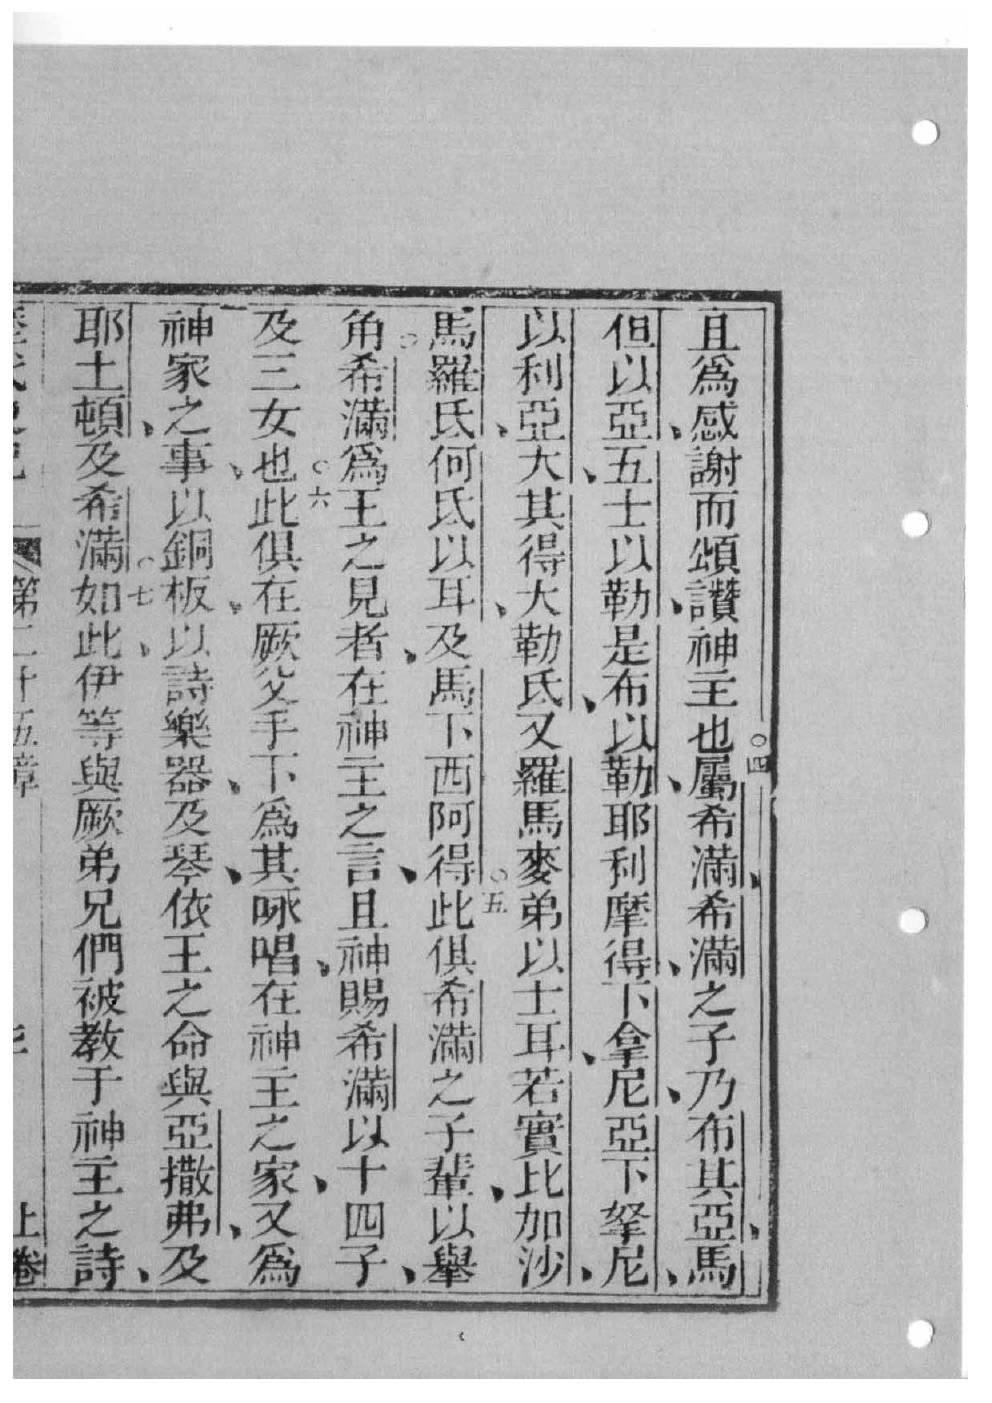 且爲感謝而頌讚神主也○四屬希滿、希滿之子乃布其亞、馬
但以亞、五士以勒、是布以勒、耶利摩得、下拿尼、亞下拏尼、
以利亞大、其得大勒氏、又羅馬麥弟以士耳、若實比加沙、
馬羅氏、何氏以耳、及馬下西阿得○五此俱希滿之子輩、以舉
角○希滿爲王之見者、在神主之言、且神賜希滿以十四子、
及三女也○六此俱在厥父手下爲其咏唱、在神主之家、又爲
神家之事、以銅板、以詩樂器、及琴、依王之命與亞撒弗、及
耶土頓、及希滿○七如此、伊等與厥弟兄們被教于神主之詩、
歷代史記 第二十五章 上卷